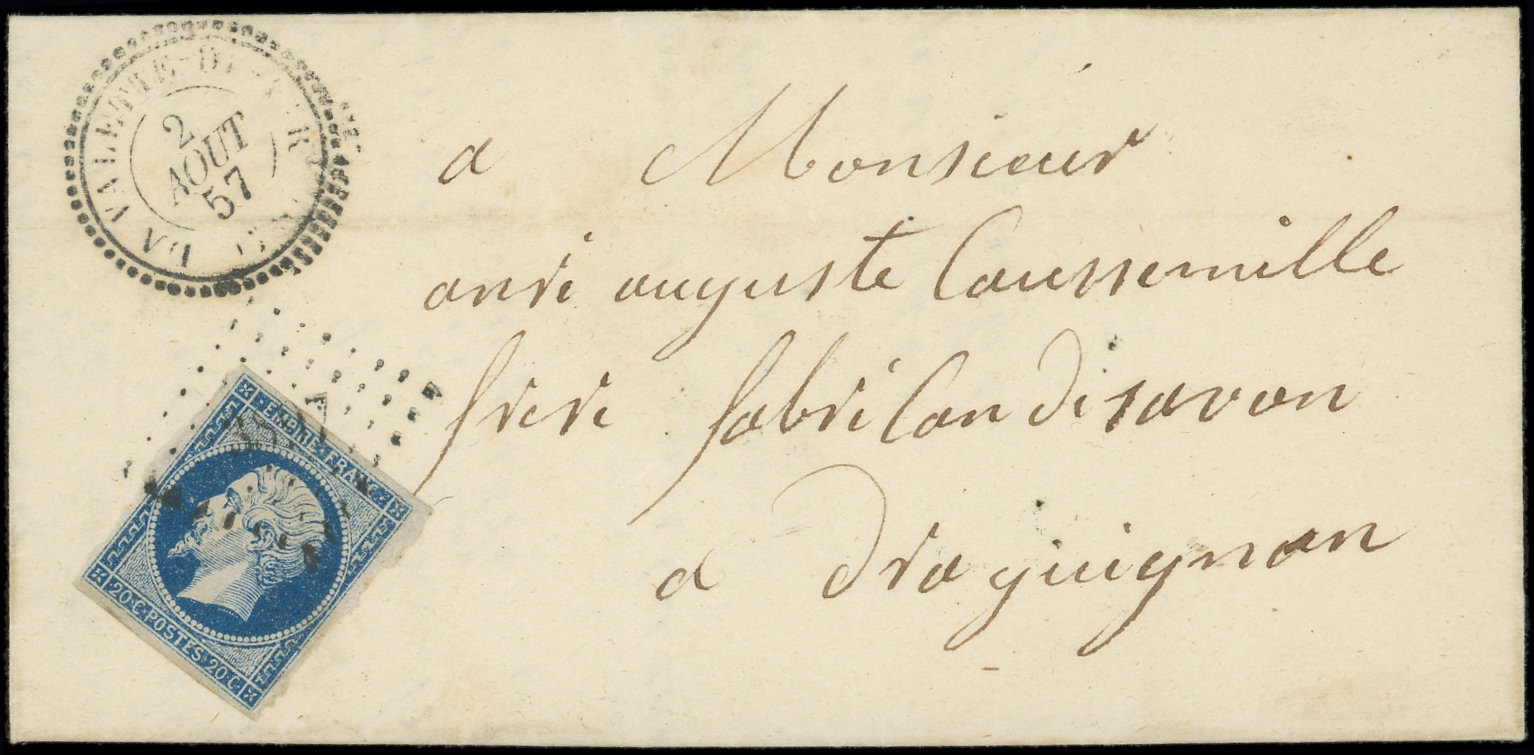 LA VALETTE-DU-VAR
2
AOUT
57
a Monsieur
anrè auguste Caussemille
frere fabrican de savon
a draguignan
EMPIRE FRANC
20·C·POSTES·20·C